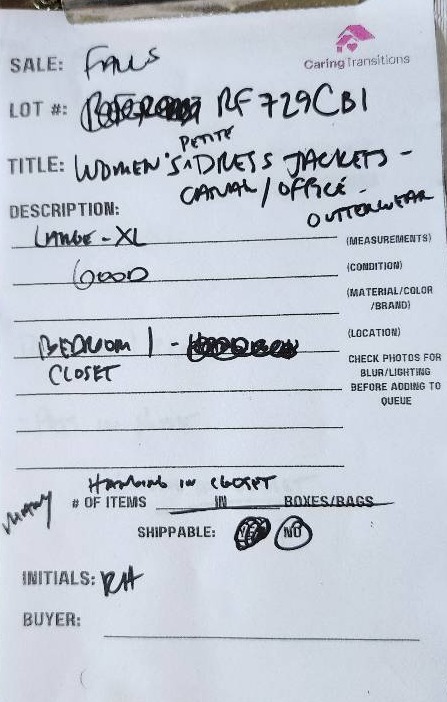 SALE: FALLS
CaringTransitions
LOT #: RF729CB1
TITLE: WOMEN'S ^PETITE DRESS JACKETS -
CASUAL / OFFICE -
OUTTERWEAR
DESCRIPTION:
LARGE - XL
(MEASUREMENTS)
GOOD
(CONDITION)
(MATERIAL/COLOR
/BRAND)
BEDROOM 1 -
(LOCATION)
CLOSET
CHECK PHOTOS FOR
BLUR/LIGHTING
BEFORE ADDING TO
QUEUE
HANGING IN CLOSET
MANY # OF ITEMS IN BOXES/BAGS
SHIPPABLE: YES NO
INITIALS: RH
BUYER: